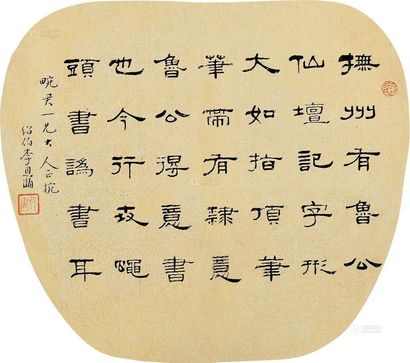 撫州有魯公
仙壇記字形
大如指頂筆
筆帶有隸意
魯公得意書
也今行蠅
頭書譌書耳
畹君一兄大人正捥
紹伯李